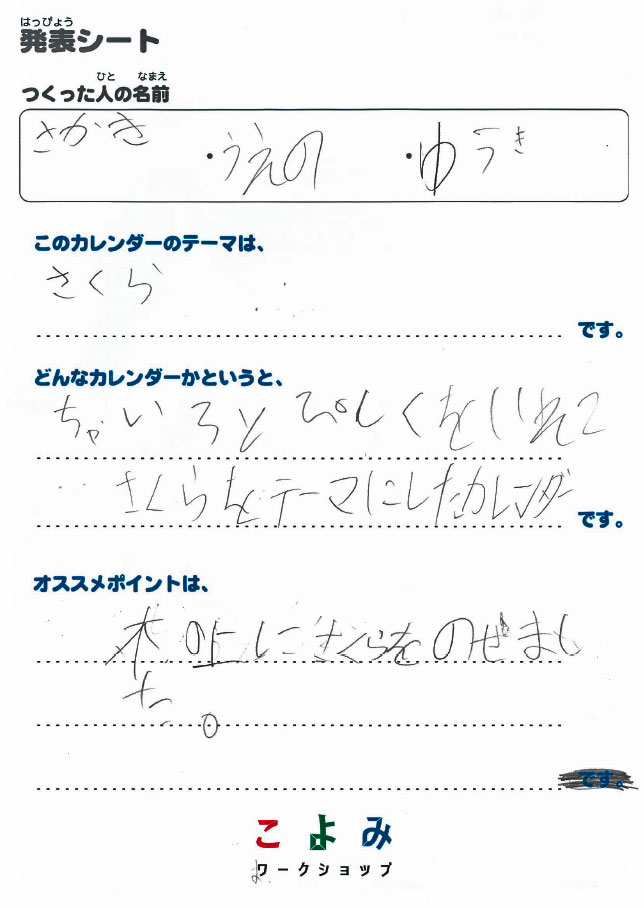 はっぴょう
発表シート
ひと なまえ
つくった人の名前
さかき ・うえの ・ゆうき
このカレンダーのテーマは、
さくら
です。
どんなカレンダーかというと、
ちゃいろとぴんくをいれて
さくらをテーマにしたカレンダー
です。
オススメポイントは、
木の上にさくらをのせまし
た。
です。
こよみ
ワークショップ